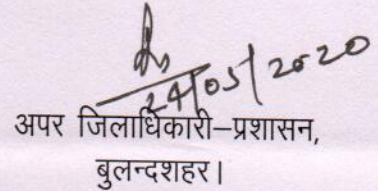 24/05/2020
अपर जिलाधिकारी–प्रशासन,
बुलन्दशहर।